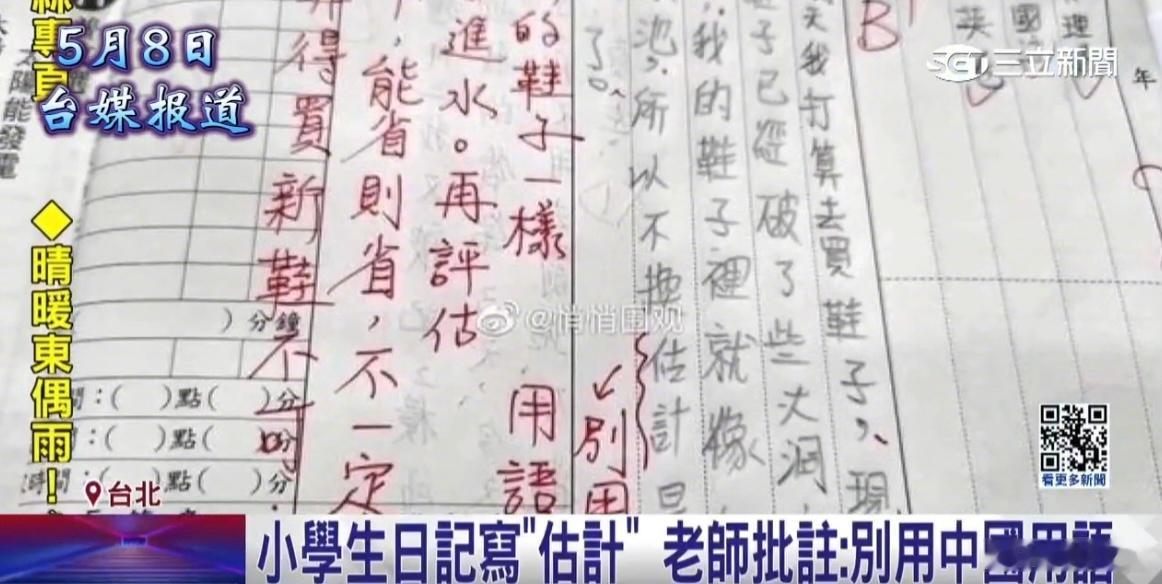 5月8日
台媒报道
三立新聞
年
理
國
英
B
天我打算去買鞋子,現
子已經破了些大洞
我的鞋子裡就像
池,所以不換估計是
了。
別用
用語
的鞋子一樣
進水。再評估
,能省則省,不一定
得買新鞋不
)分鐘
:( )點( )分
:( )點( )分
時間:( )點( )分
太陽能發電
◆晴暖東偶雨!
@悄悄围观
看更多新聞
台北
小學生日記寫"估計" 老師批註:別用中國用語